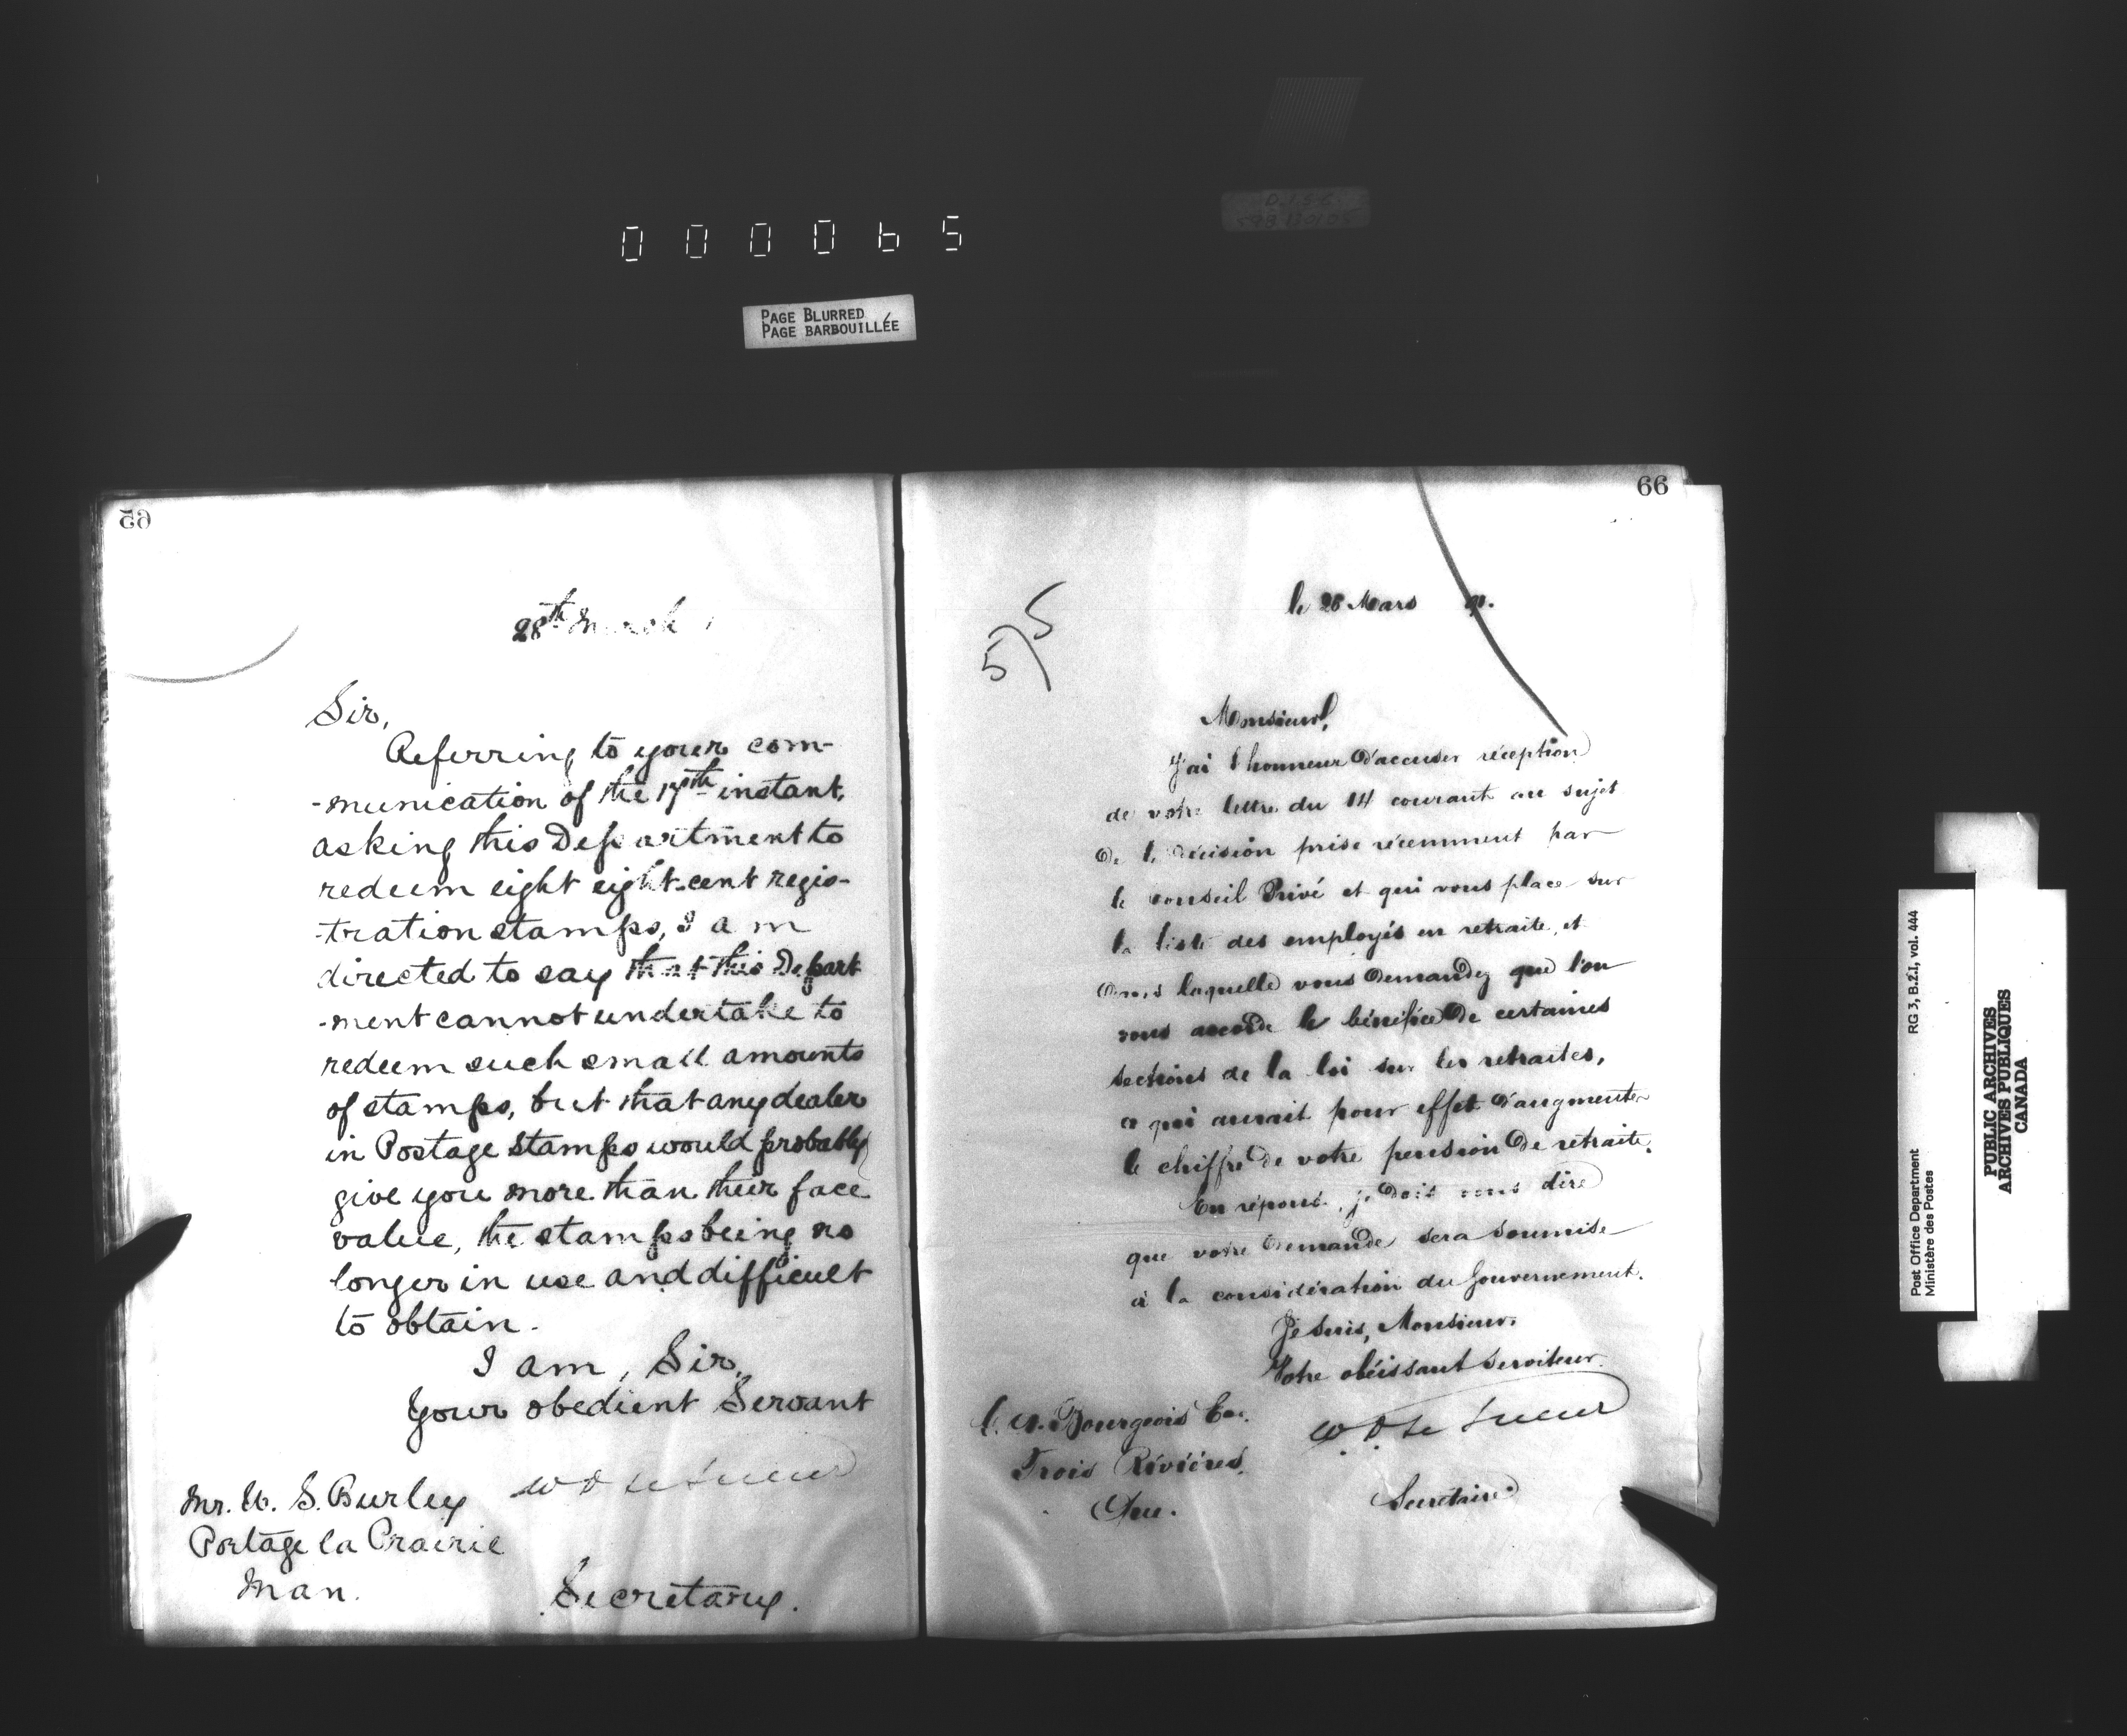 000065
PAGE BLURRED
PAGE BARBOUILLÉE
65
28th March
Sir,
Referring to your com-
-munication of the 17th instant,
asking this Department to
redeem eight eight-cent regis-
-tration stamps, I am
directed to say that this Depart
-ment cannot undertake to
redeem such small amounts
of stamps, but that any dealer
in Postage stamps would probably
give you more than their face
value, the stamps being no
longer in use and difficult
to obtain.
I am, Sir,
Your obedient Servant
W D LeSueur
Mr. W. S. Burley
Portage la Prairie
Man.
Secretary.
66
575
le 28 Mars
Monsieur,
J'ai l'honneur d'accuser réception
de votre lettre du 14 courant au sujet
de la décision prise récemment par
le conseil Privé et qui vous place sur
la liste des employés en retraite, et
dans laquelle vous demandez que l'on
vous accorde le bénéfice de certaines
sections de la loi sur les retraites,
ce qui aurait pour effet d'augmenter
le chiffre de votre pension de retraite.
En réponse, je dois vous dire
que votre demande sera soumise
à la considération du Gouvernement.
Je suis, Monsieur,
Votre obéissant serviteur.
W D Le Sueur
Bourgeois
Trois Rivières,
Que.
Secrétaire
RG 3, B.2.I, vol. 444
Post Office Department
Ministère des Postes
PUBLIC ARCHIVES
ARCHIVES PUBLIQUES
CANADA